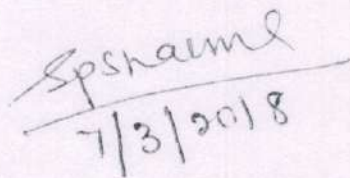 Spsharma
7/3/2018